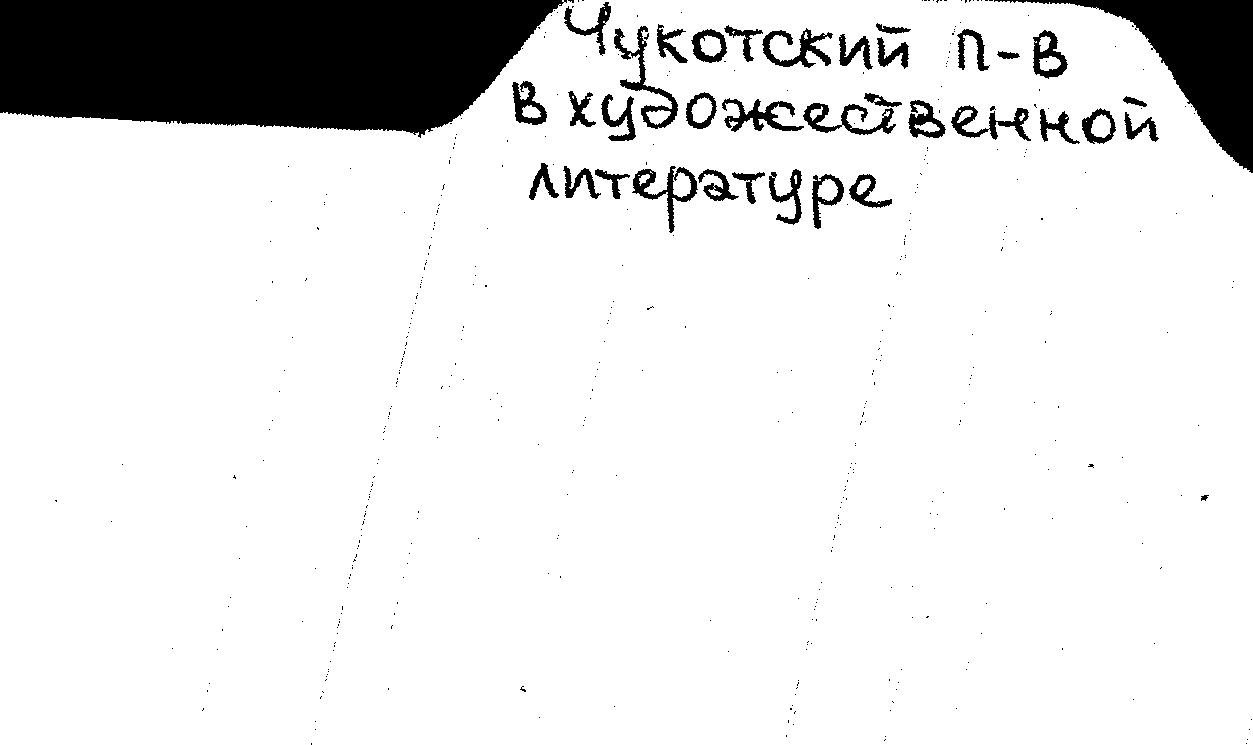 Чукотский п-в
в художественной
литературе